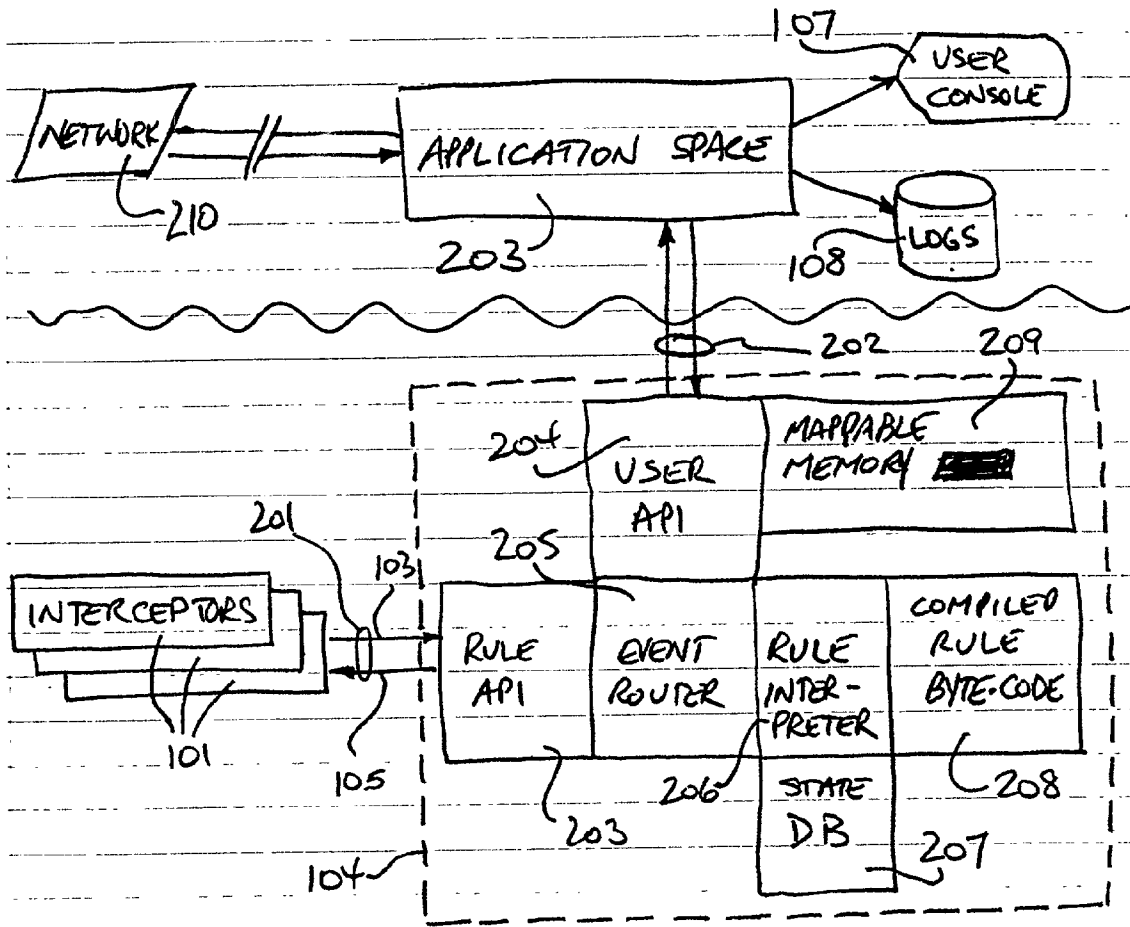 107
USER
CONSOLE
NETWORK
210
APPLICATION SPACE
203
108
LOGS
202
209
204
USER
API
MAPPABLE
MEMORY
201
103
205
INTERCEPTORS
101
105
RULE
API
EVENT
ROUTER
RULE
INTER-
PRETER
COMPILED
RULE
BYTE-CODE
206
208
203
STATE
DB
207
104